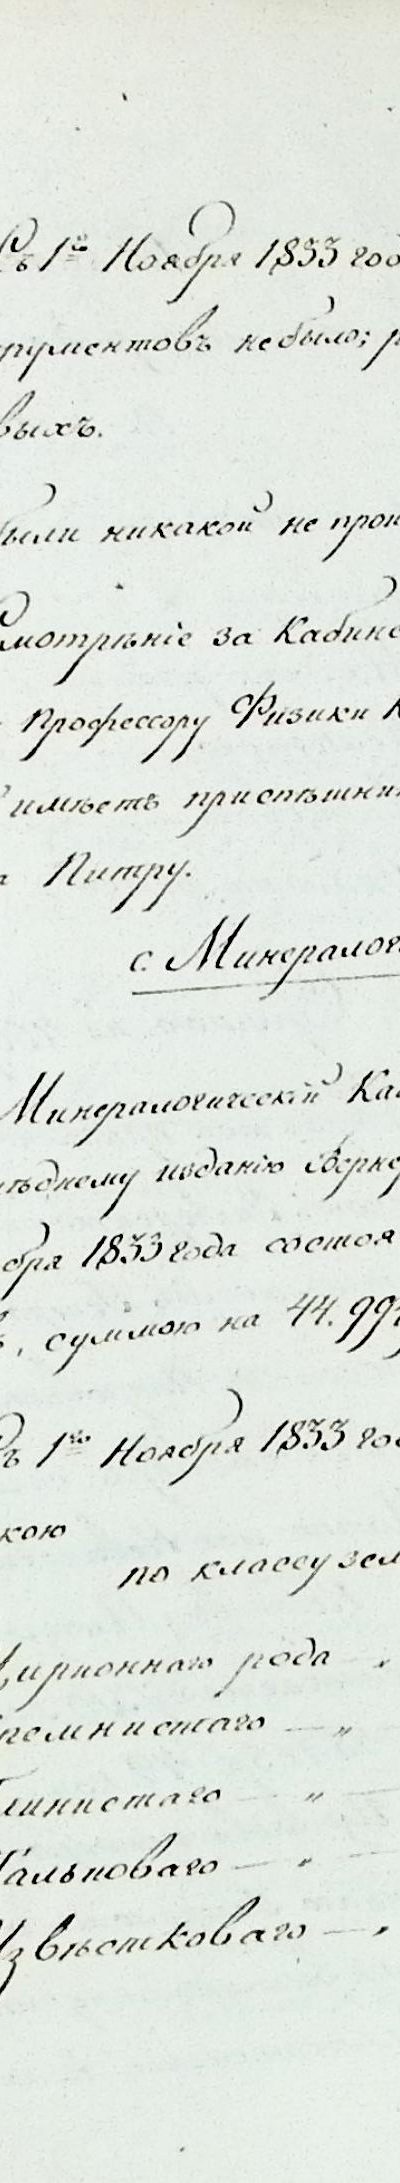 Съ 1го Ноября 1833 год
трументовъ небыло;
выхъ.
были никакой не прои
Смотрѣніе за Кабине
Профессору Физики К
имѣетъ приспѣшни
Питру.
с. Минералог
Минералогическій Каб
слѣдному изданію Верне
ября 1833 года состоя
въ, суммою на 44.99
Съ 1го Ноября 1833 год
кою
по классу зем
Цирконнаго рода — „
Кремнистаго — „
Глинистаго — „ —
Талькováго — „ —
Известковаго — „